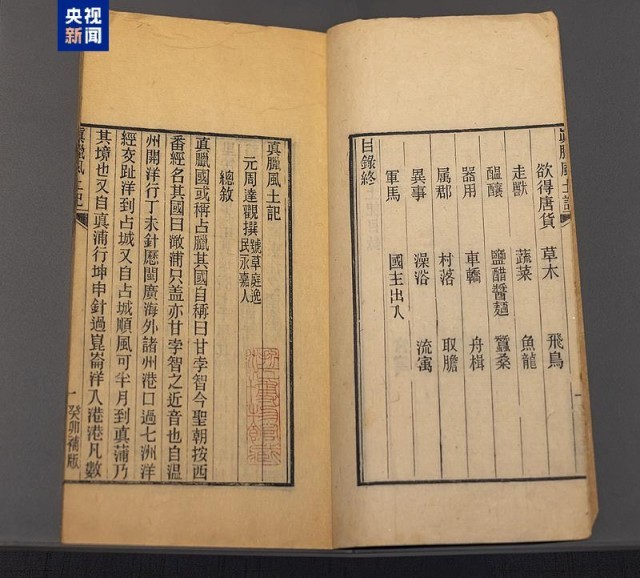 央视
新闻
眞臘風土記
欲得唐貨 草木 飛鳥
走獸 蔬菜 魚龍
醖釀 鹽醋醬麵 蠶桑
器用 車轎 舟楫
属郡 村落 取膽
異事 澡浴 流寓
軍馬 國主出入
目錄終
眞臘風土記
元周達觀撰 號草庭逸
民永嘉人
總敘
眞臘國或稱占臘其國自稱曰甘孛智今聖朝按西
番經名其國曰澉浦只盖亦甘孛智之近音也自温
州開洋行丁未針歷閩廣海外諸州港口過七洲洋
經交趾洋到占城又自占城順風可半月到眞蒲乃
其境也又自眞蒲行坤申針過崑崙洋入港港凡數
眞臘風土記
一 癸卯補版